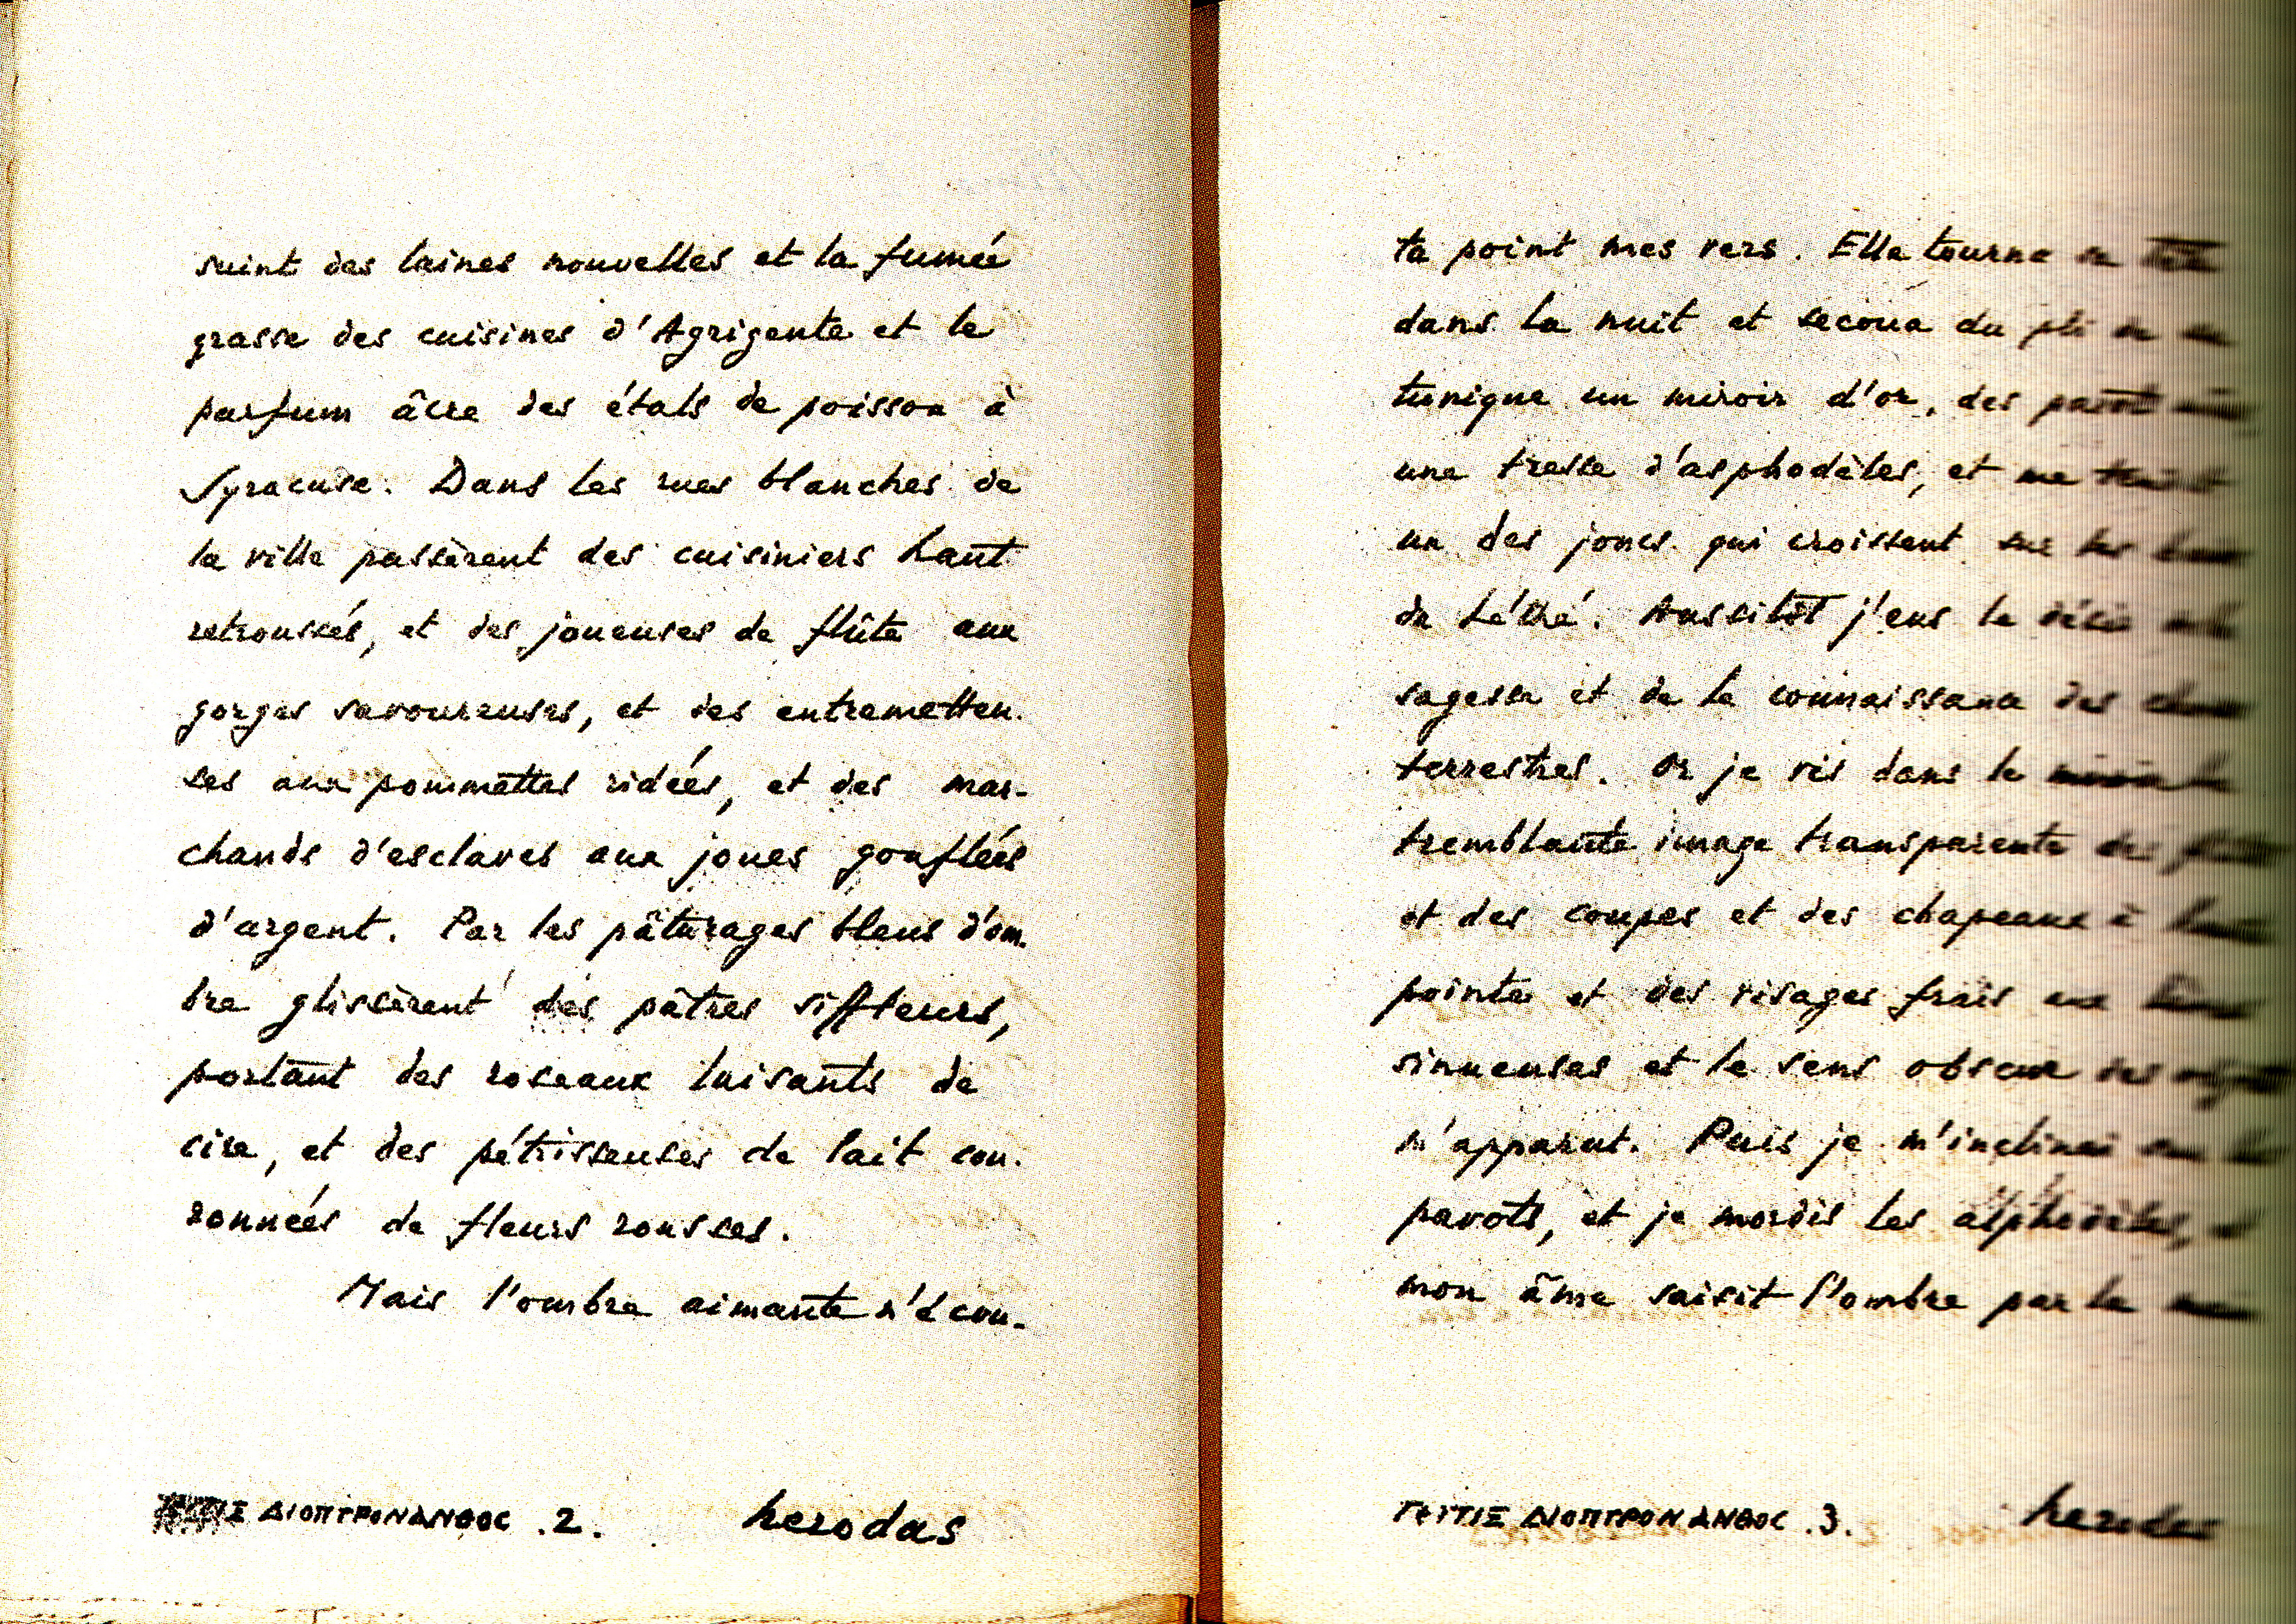 suint des laines nouvelles et la fumée
grasse des cuisines d'Agrigente et le
parfum âcre des étals de poisson à
Syracuse. Dans les rues blanches de
la ville passèrent des cuisiniers haut
retroussés, et des joueuses de flûte aux
gorges savoureuses, et des entremetteu-
ses aux pommettes ridées, et des mar-
chands d'esclaves aux joues gonflées
d'argent. Par les pâturages bleus d'om-
bre glissèrent des pâtres siffleurs,
portant des roseaux luisants de
cire, et des pétrisseuses de lait cou-
ronnées de fleurs rousses.
Mais l'ombre aimante n'écou-
ΔΙΟΠΤΡΟΝΑΝΘΟC .2. herodas
ta point mes vers. Elle tourna sa tête
dans la nuit et secoua du pli de sa
tunique un miroir d'or, des pavot
une tresse d'asphodèles, et me
un des joncs qui croissent sur les
de Léthé. Aussitôt j'eus le désir
sagesse et de la connaissance des
terrestres. Or je vis dans le miroir la
tremblante image transparente des
et des coupes et des chapeaux à
pointe et des visages frais aux
sinueuses et le sens obscur des
m'apparut. Puis je m'inclinai sur les
pavots, et je mordis les asphodèles,
mon âme saisit l'ombre par la
ΔΙΟΠΤΡΟΝΑΝΘΟC .3. herodas